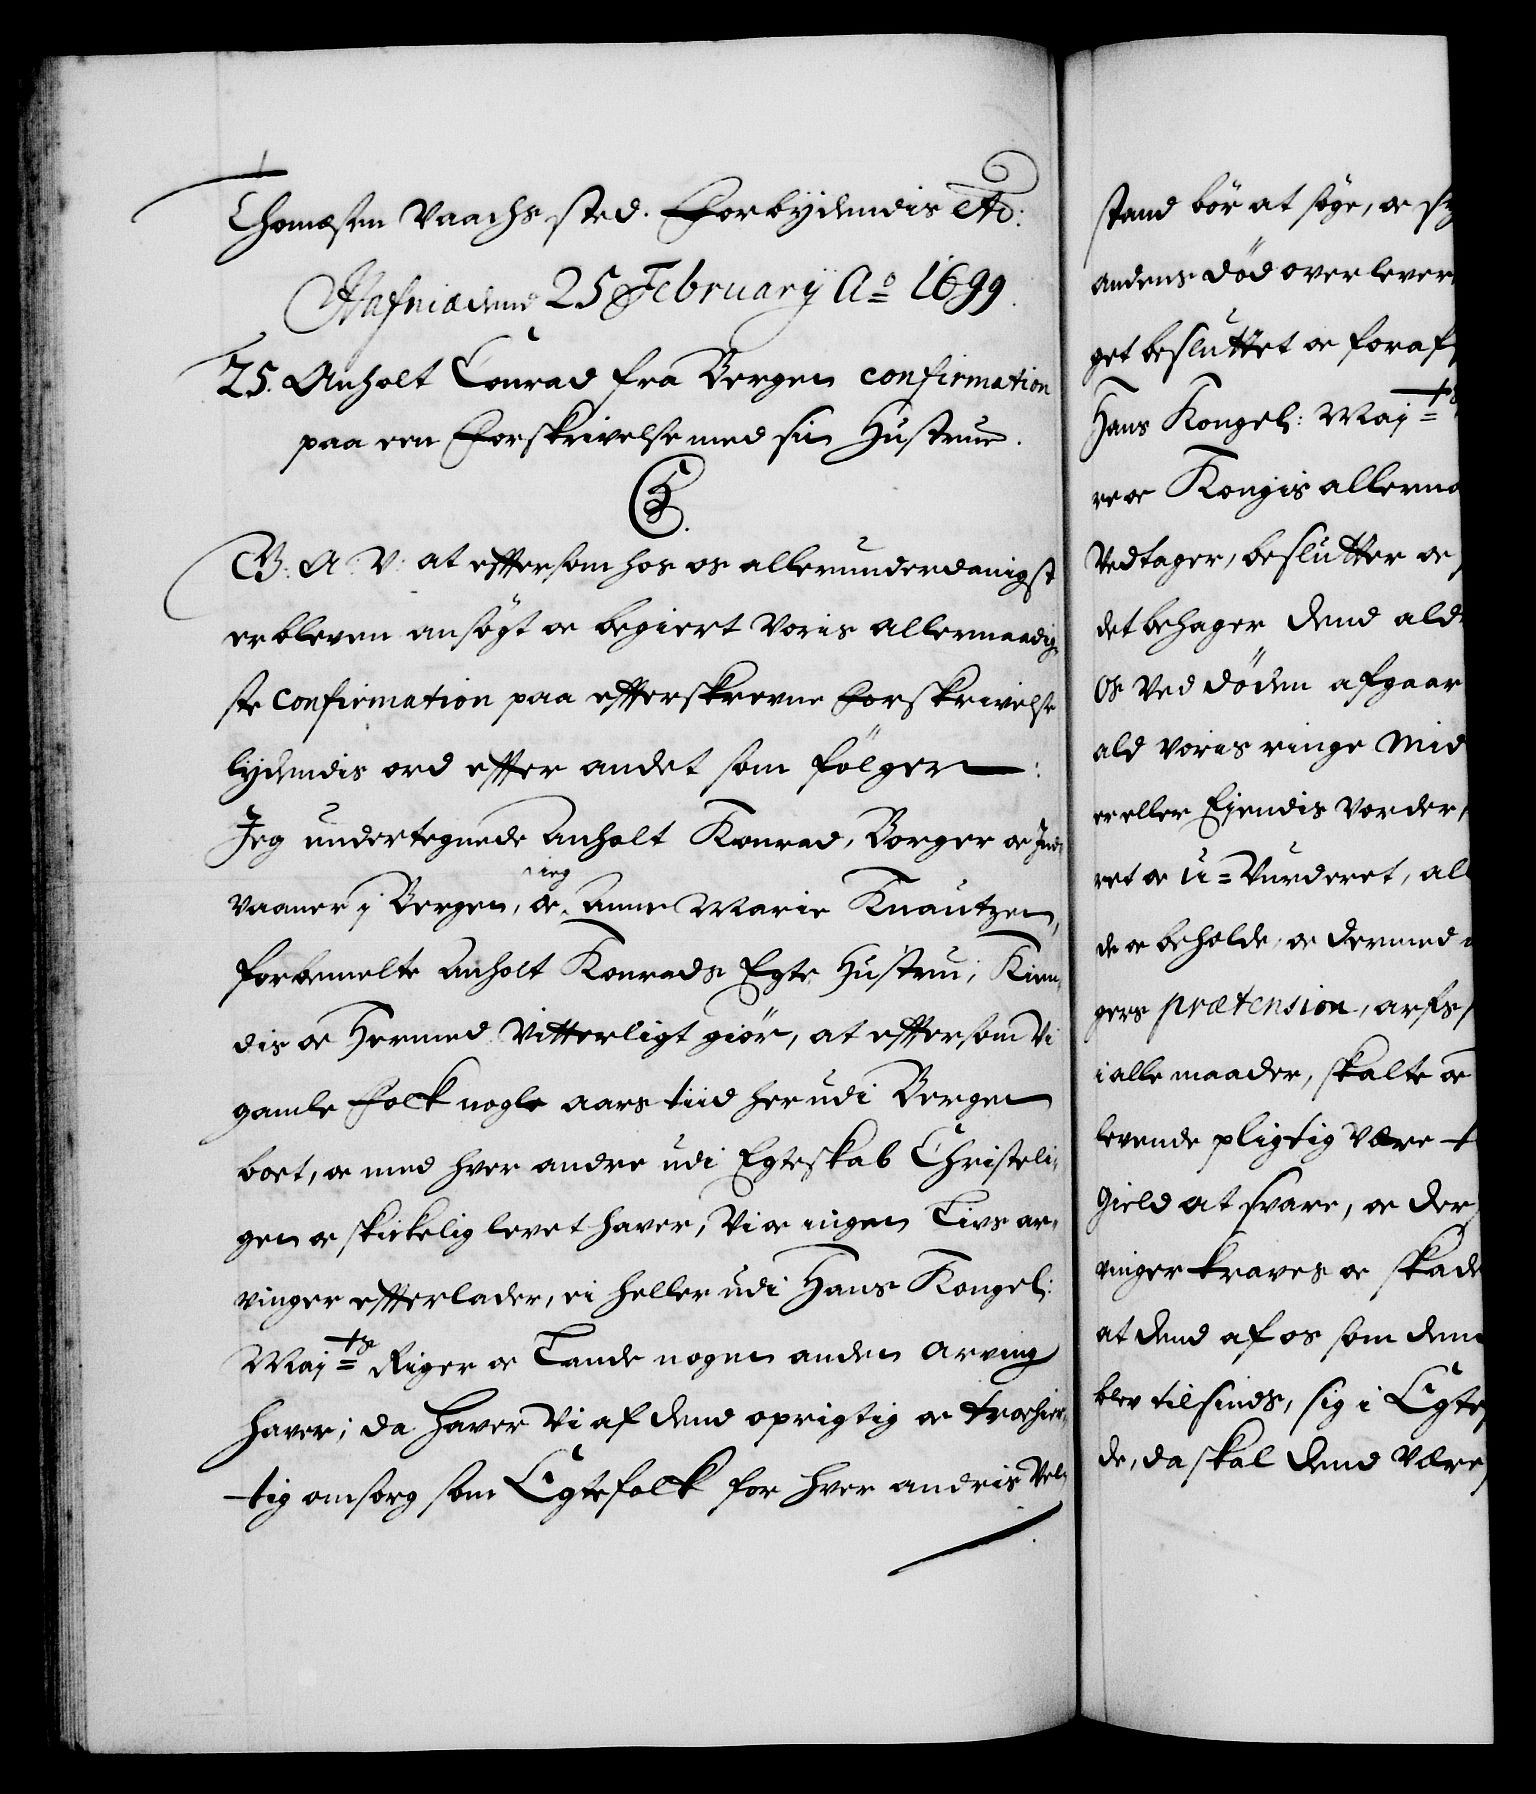 Thomæsen Vaachs sted. Forbydendis etc:
Hafniæ dend 25 February Ao 1699.
25. Anholt Conrad fra Bergen confirmation
paa een Forskrivelse med sin Hustrue.
C5.
G: A: V: at eftersom hos os allerunderdanigst
er bleven ansøgt oc begiert Voris allernaadig-
ste confirmation paa efterskrevne Forskrivelse
lydendis ord efter andet som følger:
Jeg undertegnede Anholt Konrad, Borger oc Ind-
vaaner j Bergen, oc ieg Anne Marie Knautzen,
forbemelte Anholt Konrads Egte Hustru; Kien-
dis oc Hermed Vitterligt giør, at eftersom Vi
gamle Folk nogle aars tiid her udi Bergen
boet, oc med hver andre udi Egteskab Christeli-
gen oc skickelig levet haver, Vi oc ingen Livs ar-
vinger efterlader, ei heller udi Hans Kongel:
Maj:ts Riger oc Lande nogen anden Arving
haver; da haver Vi af dend oprigtig oc troehier-
tig omsorg som Egtefolk for hver andris Vel-
stand bør at søge, oc
andens død overlever
get besluttet oc foraf
Hans Kongel: Maj:ts
re oc Kongis allerna
Vedtager, beslutter oc
det behager dend ald
os Ved døden afgaar
ald Voris ringe Mid
er eller Ejendis Vorder,
ret oc U-Vurderet, al
de oc beholde, oc dermed
gers prætension, arfs
i alle maader, skalte oc
levende pligtig Være t
Gield at svare, oc der
vinger kraves oc skade
at dend af os som dend
blev tilsinds, sig i Egte
de, da skal dend Være